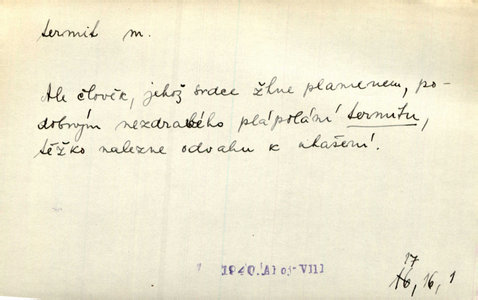 termit m.
Ale člověk, jehož srdce žhne plamenem, po-
dobným nezdravého plápolání termitu,
těžko nalezne odvahu k uhašení.
1940. Ahoj-VIII
17
16, 16, 1